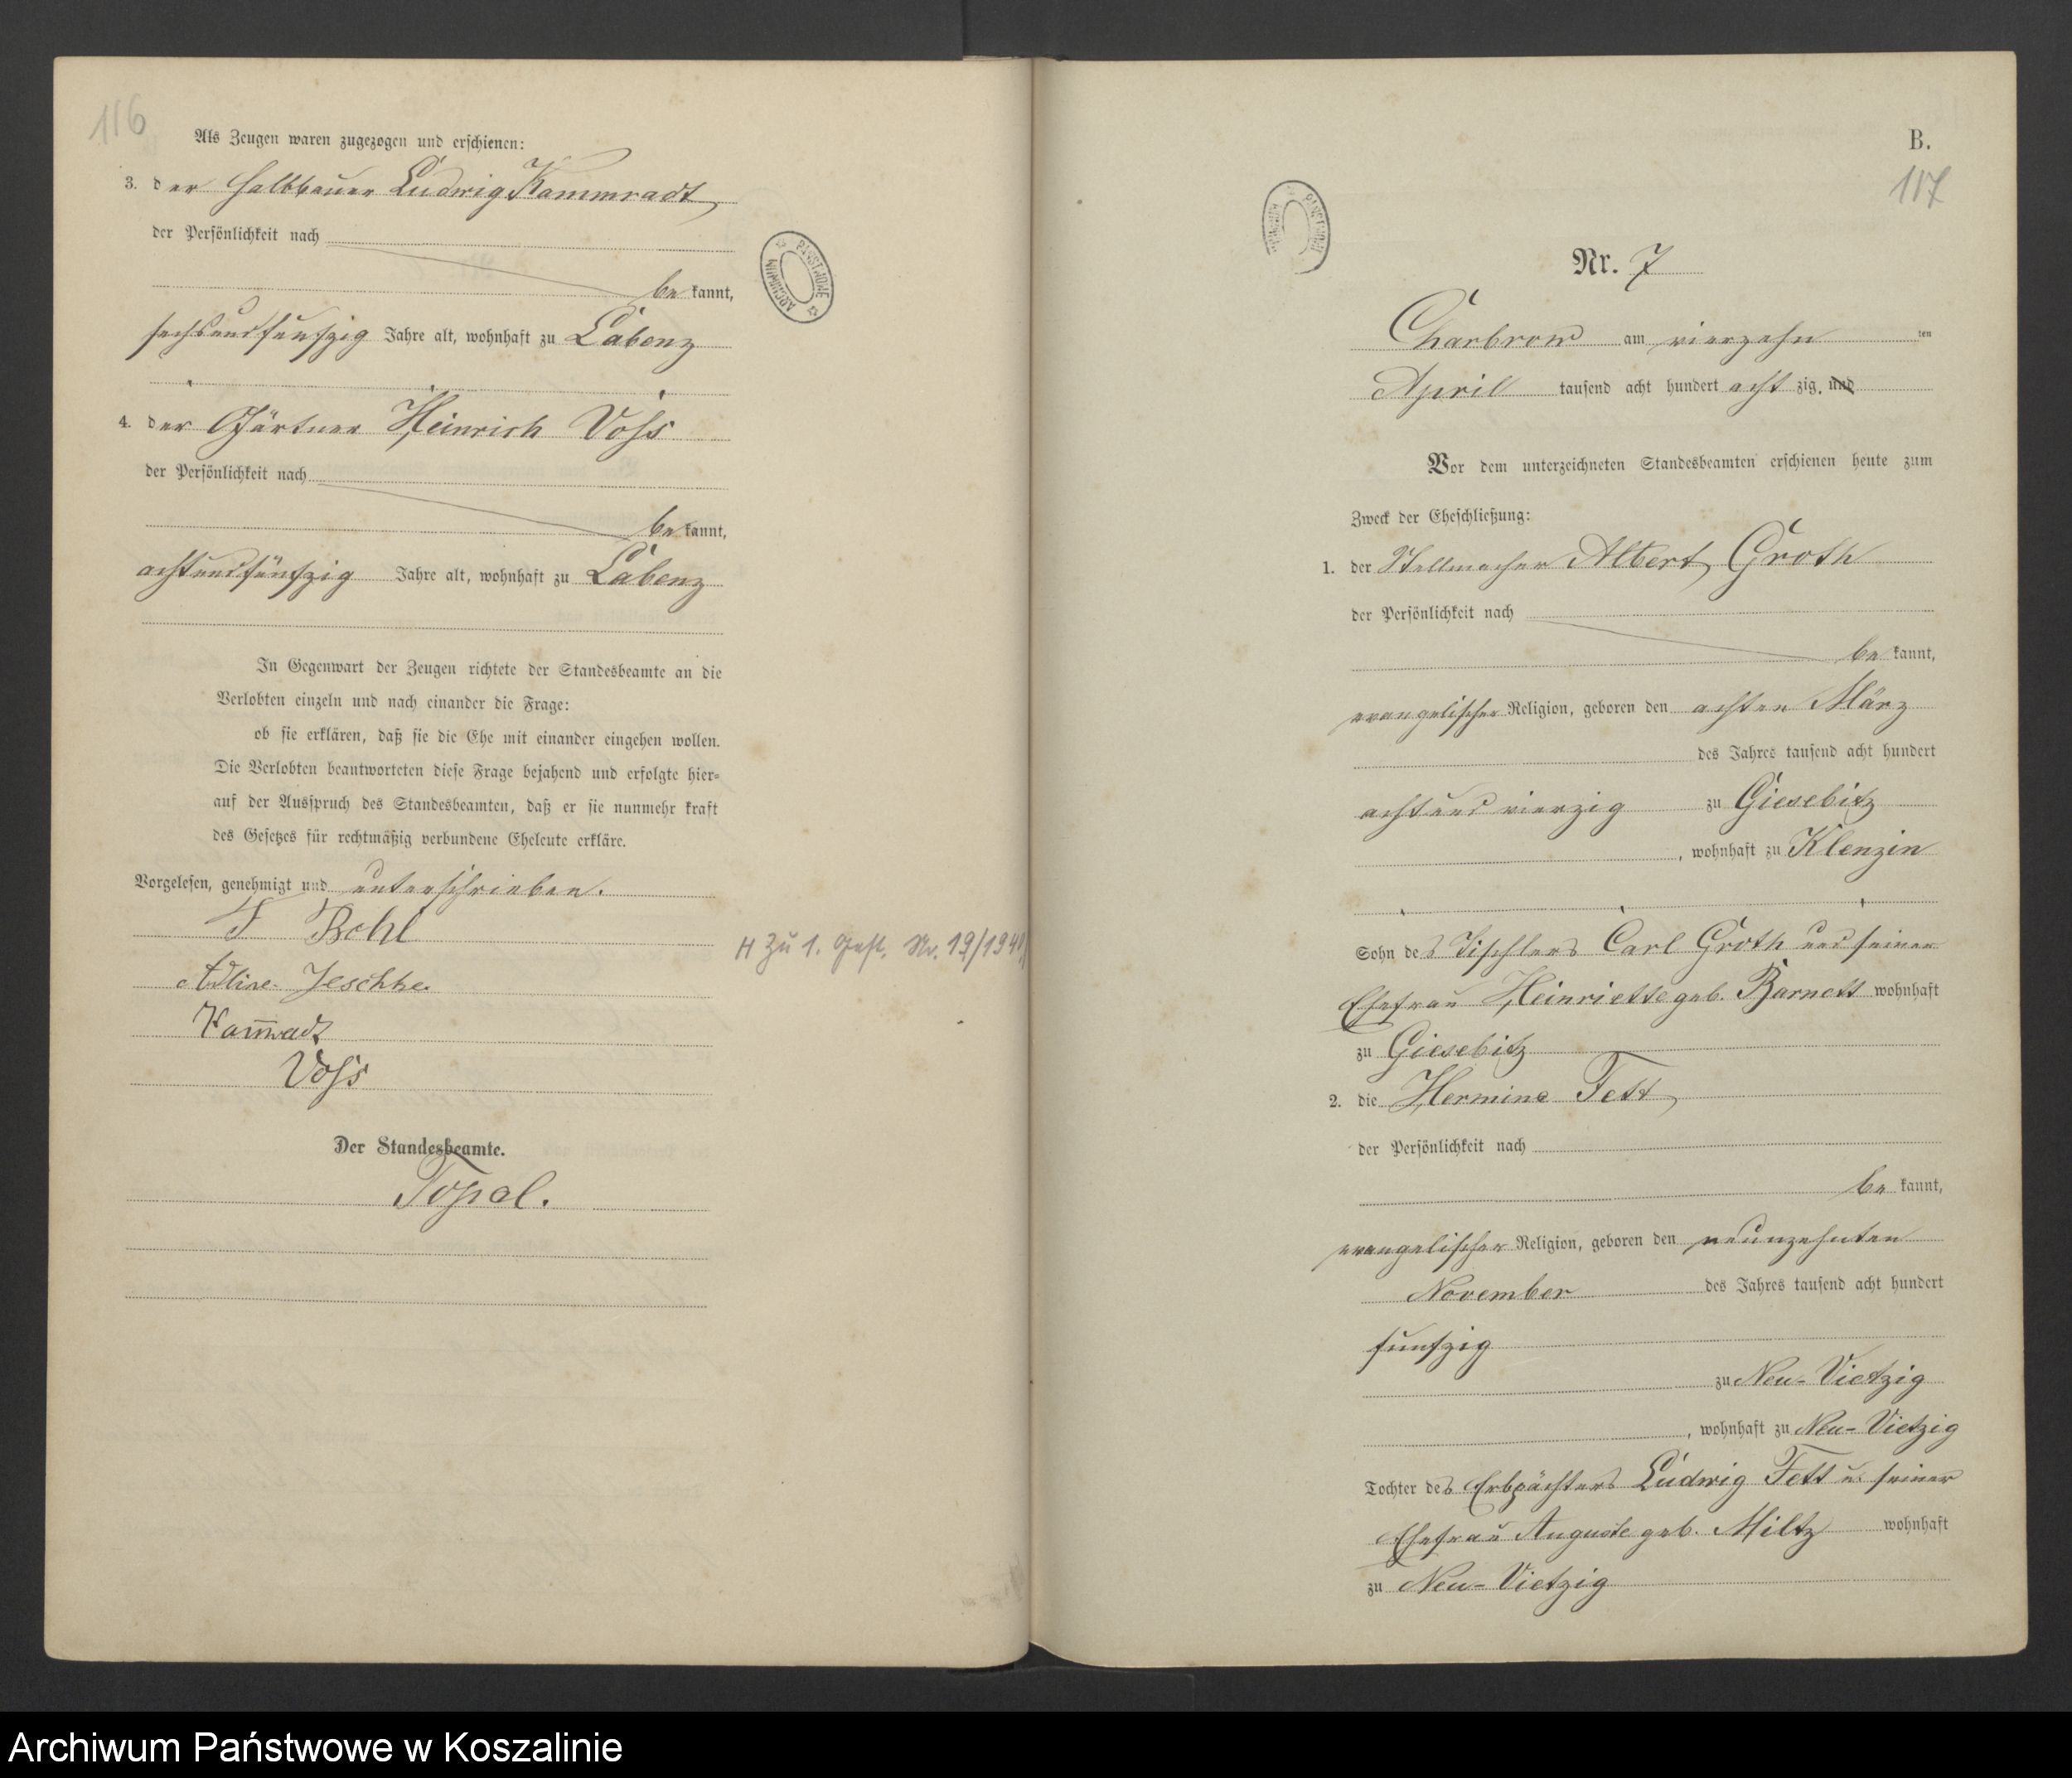 116
Als Zeugen waren zugezogen und erschienen:
3. der Halbbauer Ludwig Kammradt,
der Persönlichkeit nach
bekannt,
sechsundfünfzig Jahre alt, wohnhaft zu Labenz
4. der Gärtner Heinrich Voſs
der Persönlichkeit nach
bekannt,
achtundfünfzig Jahre alt, wohnhaft zu Labenz
In Gegenwart der Zeugen richtete der Standesbeamte an die
Verlobten einzeln und nach einander die Frage:
ob sie erklären, daß sie die Ehe mit einander eingehen wollen.
Die Verlobten beantworteten diese Frage bejahend und erfolgte hier-
auf der Ausspruch des Standesbeamten, daß er sie nunmehr kraft
des Gesetzes für rechtmäßig verbundene Eheleute erkläre.
Vorgelesen, genehmigt und unterschrieben.
F
Jeschke
Kam̄radt
Voſs
Der Standesbeamte.
H Zu 1. Nr. 19/1940
ARCHIWUM PAŃSTWOWE
B.
117
ARCHIWUM PAŃSTWOWE
Nr. 7
Charbrow am vierzehn ten
April tausend acht hundert achtzig. und
Vor dem unterzeichneten Standesbeamten erschienen heute zum
Zweck der Eheschließung:
1. der Stellmacher Albert Groth
der Persönlichkeit nach
bekannt,
evangelischer Religion, geboren den achten März
des Jahres tausend acht hundert
achtund vierzig zu Giesebitz
, wohnhaft zu Klenzin
Sohn des Tischlers Carl Groth und seiner
Ehefrau Heinriette geb. Barnett wohnhaft
zu Giesebitz
2. die Hermine Fett,
der Persönlichkeit nach
bekannt,
evangelischer Religion, geboren den neunzehnten
November des Jahres tausend acht hundert
funfzig
zu Neu-Vietzig
, wohnhaft zu Neu-Vietzig
Tochter des Erbpächters Ludwig Fett u. seiner
Ehefrau Auguste geb. Miltz wohnhaft
zu Neu-Vietzig
Archiwum Państwowe w Koszalinie